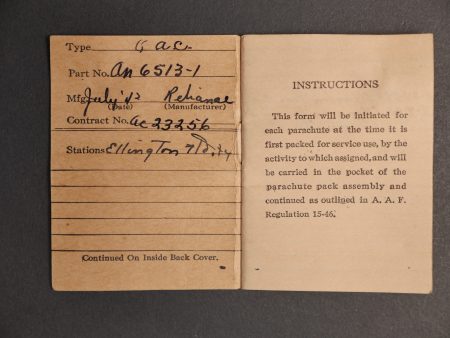 Type
Part No. An 6513-1
Mfg. July '43 Reliance
(Date) (Manufacturer)
Contract No. ac 23256
Stations Ellington
Continued On Inside Back Cover.
INSTRUCTIONS
This form will be initiated for
each parachute at the time it is
first packed for service use, by the
activity to which assigned, and will
be carried in the pocket of the
parachute pack assembly and
continued as outlined in A. A. F.
Regulation 15-46.